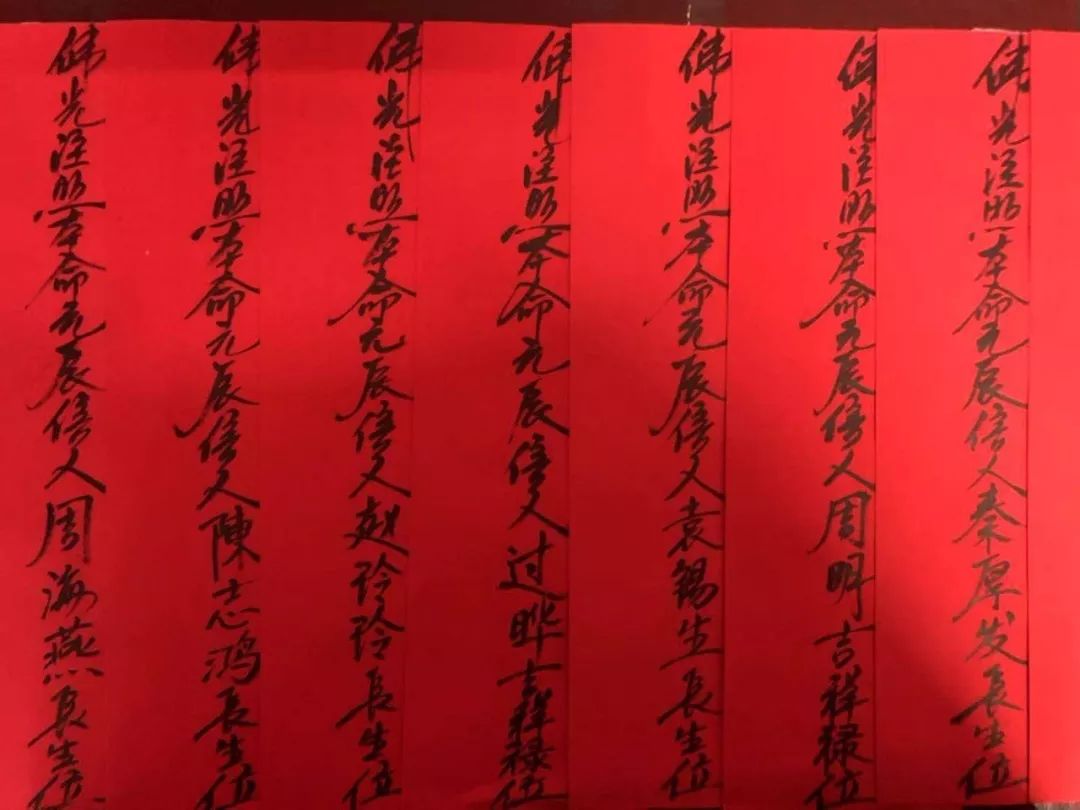 佛光注照本命元辰信人秦厚发長生位
佛光注照本命元辰信人周明吉祥禄位
佛光注照本命元辰信人袁锡生長生位
佛光注照本命元辰信人过晔吉祥禄位
佛光注照本命元辰信人赵玲玲長生位
佛光注照本命元辰信人陳志鸿長生位
佛光注照本命元辰信人周海燕長生位